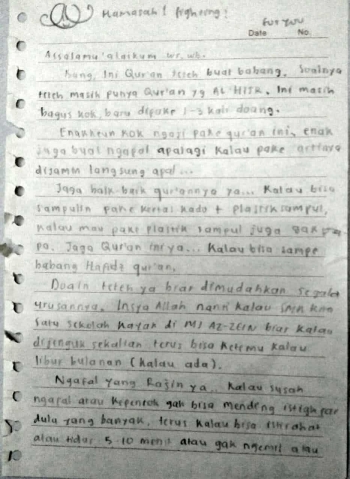 Hamasah! fighting!
for you
Date No.
Assalamu'alaikum wr, wb.
bang, Ini Qur'an teteh buat babang. Soalnya
teteh masih punya Qur'an yg AL HITK. Ini masih
bagus kok, baru dipake 1-3 kali doang.
Enakkeun kok ngaji pake qur'an ini, enak
juga buat ngapal apalagi kalau pake artinya
langsung apal...
Jaga baik-baik qur'annya ya... Kalau bisa
sampulin pake kertas kado + plastik sampul,
kalau mau pake plastik sampul juga gak
pa. Jaga Qur'an ini ya... Kalau bisa sampe
babang Hafidz qur'an.
Doain teteh ya biar dimudahkan segala
urusannya. Insya Allah nanti kalau SMA kan
satu sekolah kayak di MI AZ-ZEIN biar kalau
dijenguk sekalian terus bisa ketemu kalau
libur bulanan (kalau ada).
Ngafal yang Rajin ya.. kalau susah
ngafal atau kepentok gak bisa mending istighfar
dulu yang banyak, terus kalau bisa istirahat
atau tidur 5-10 menit atau gak ngemil atau